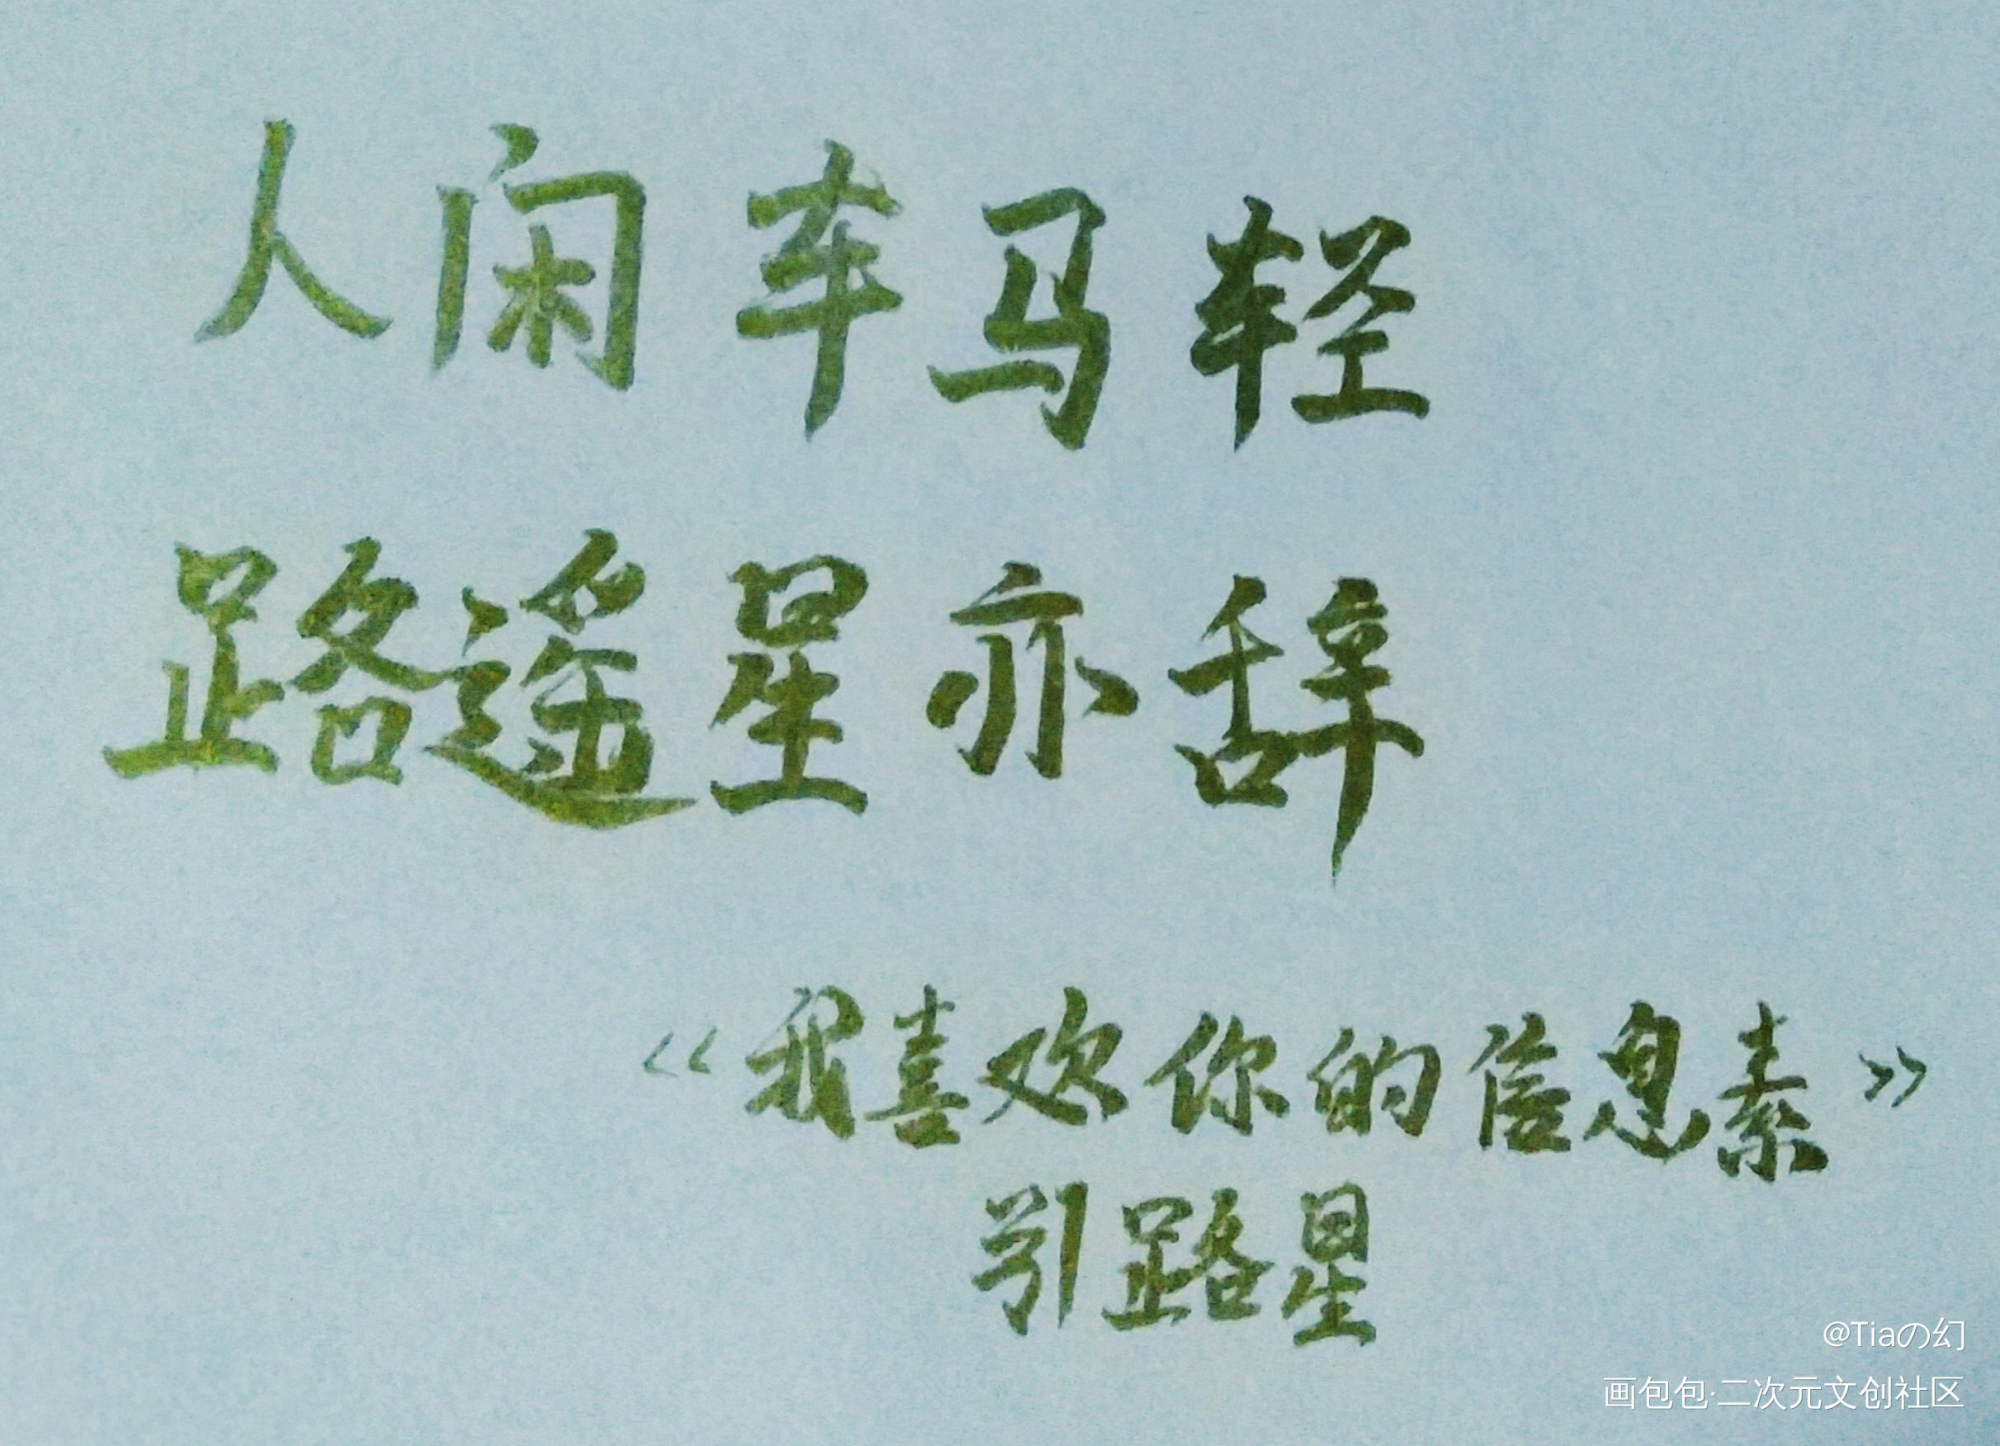 人闲车马轻
路遥星亦辞
《我喜欢你的信息素》
引路星
@Tiaの幻
画包包·二次元文创社区